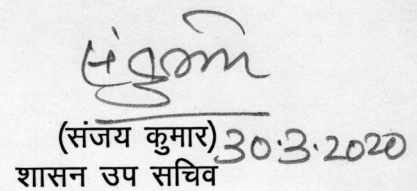 (संजय कुमार) 30.3.2020
शासन उप सचिव